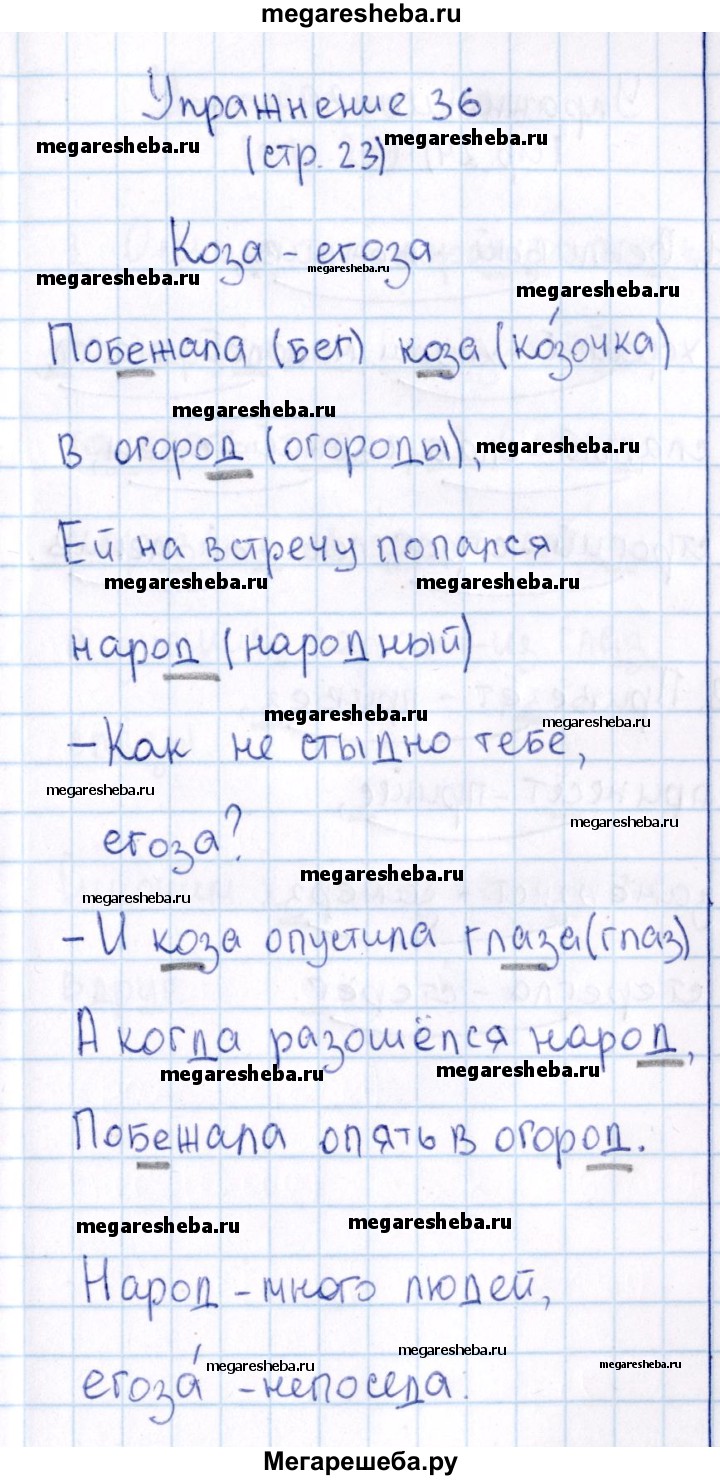 megaresheba.ru
Упражнение 36
megaresheba.ru
megaresheba.ru
(стр. 23)
Коза - егоза
megaresheba.ru
megaresheba.ru
megaresheba.ru
Побежала (бег) коза (ко́зочка)
megaresheba.ru
в огород (огороды),
megaresheba.ru
Ей на встречу попался
megaresheba.ru
megaresheba.ru
народ (народный)
megaresheba.ru
megaresheba.ru
- Как не стыдно тебе,
megaresheba.ru
megaresheba.ru
егоза?
megaresheba.ru
megaresheba.ru
- И коза опустила глаза (глаз)
А когда разошёлся народ,
megaresheba.ru
megaresheba.ru
Побежала опять в огород.
megaresheba.ru
megaresheba.ru
Народ - много людей,
megaresheba.ru
megaresheba.ru
megaresheba.ru
егоза́ - непоседа.
Мегарешеба.ру